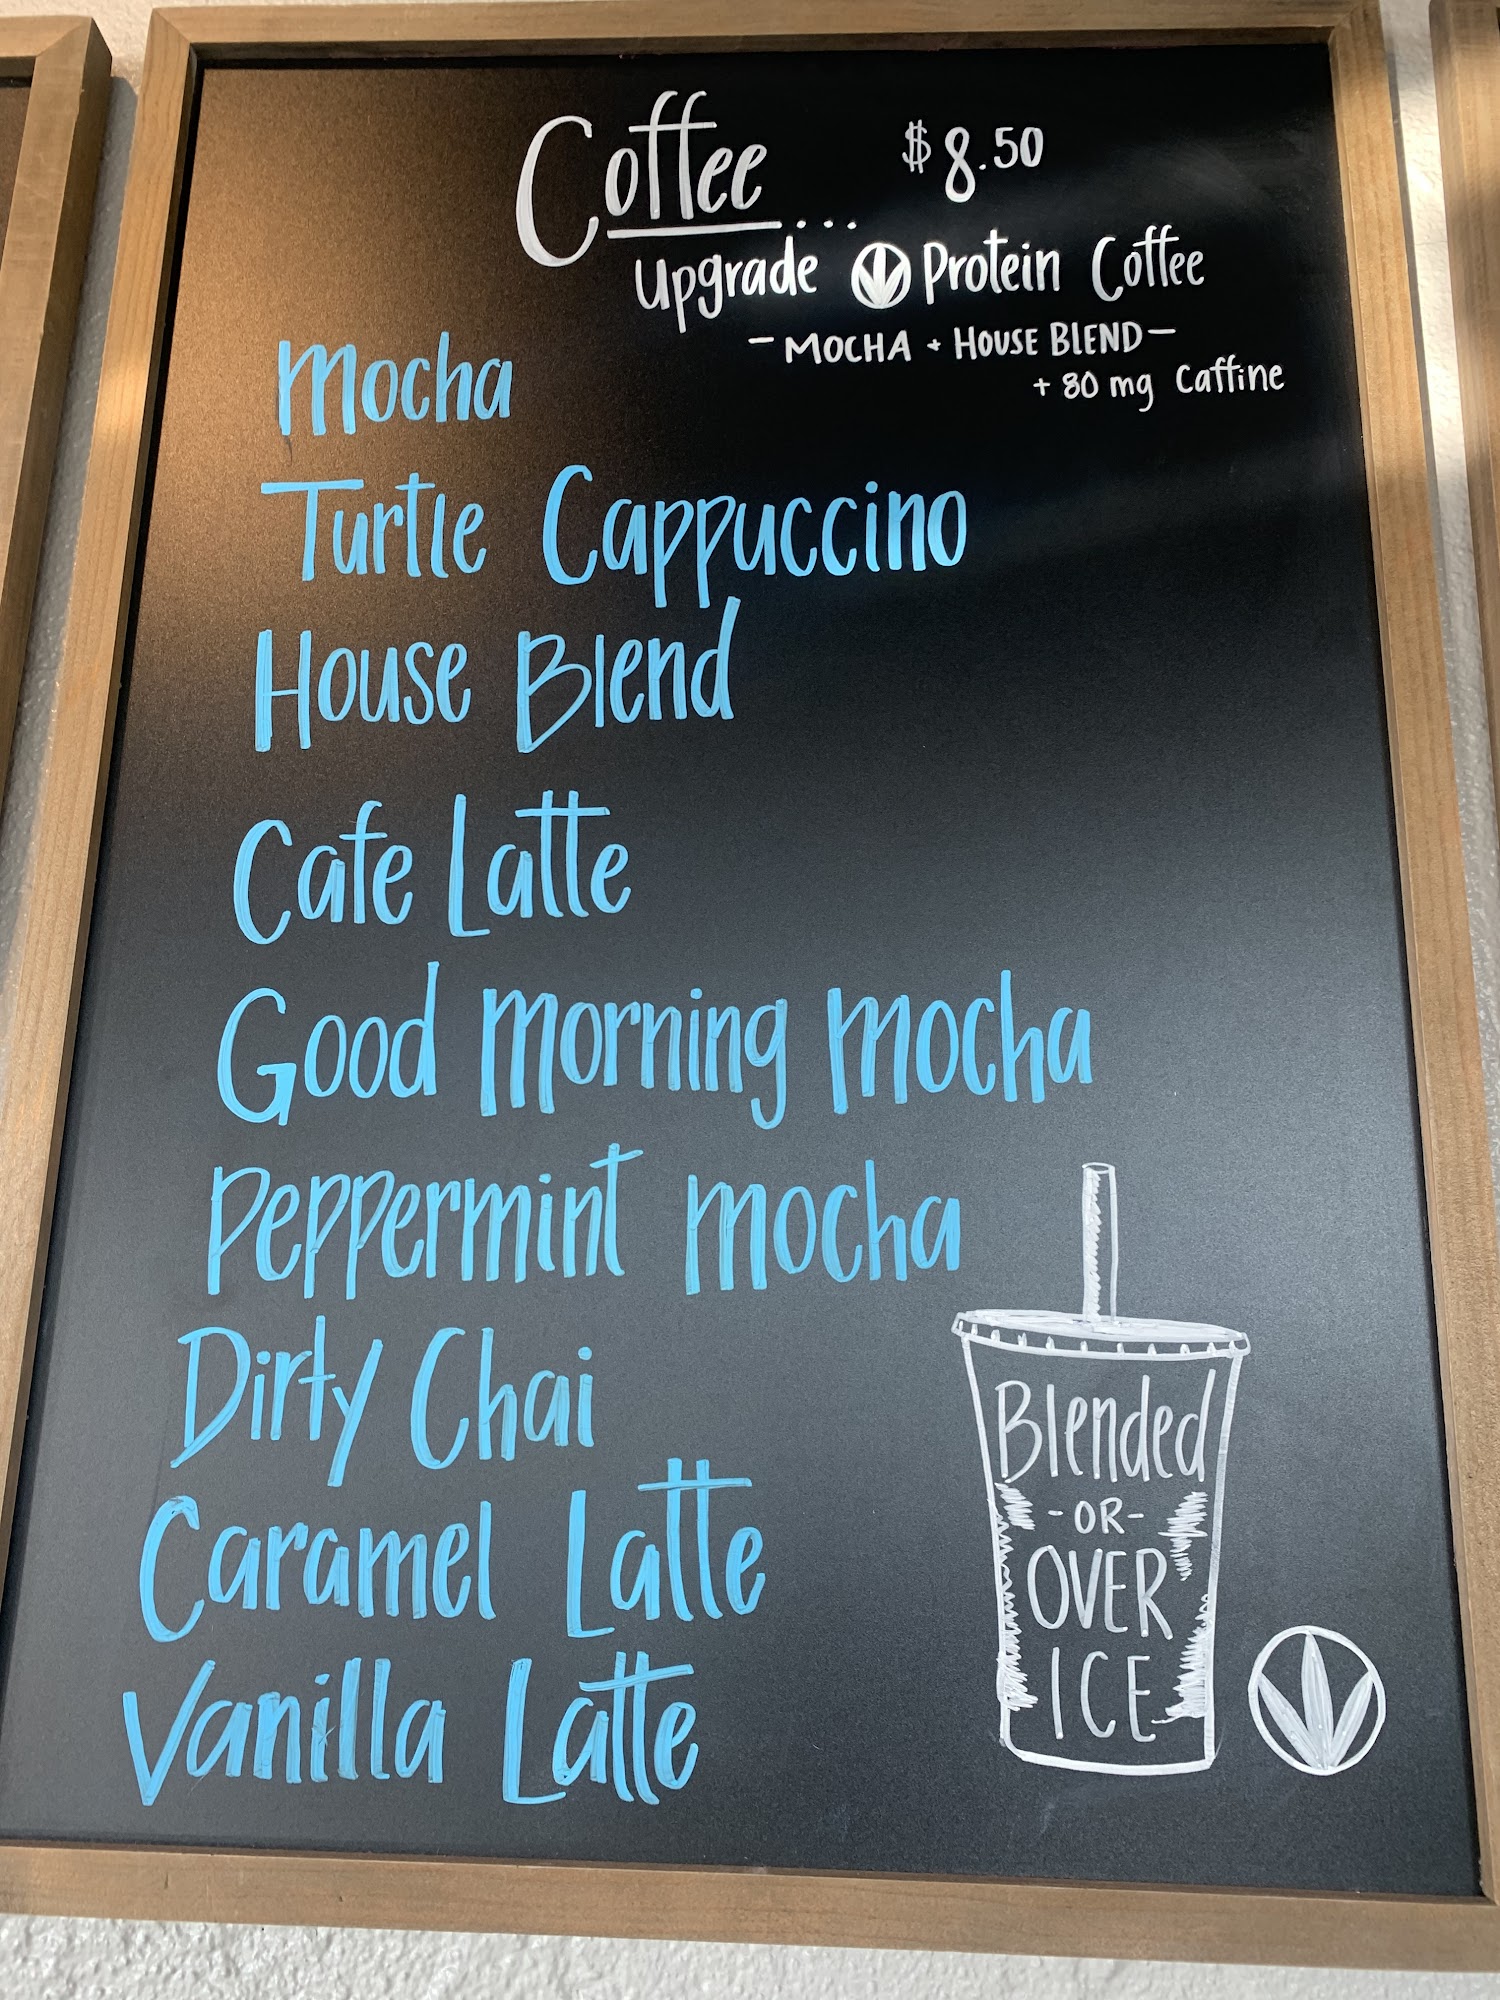 Coffee... $8.50
Upgrade Protein Coffee
- MOCHA + HOUSE BLEND -
+ 80 mg Caffine
Mocha
Turtle Cappuccino
House Blend
Cafe Latte
Good Morning Mocha
Peppermint Mocha
Dirty Chai
Caramel Latte
Vanilla Latte
Blended
-OR-
OVER
ICE